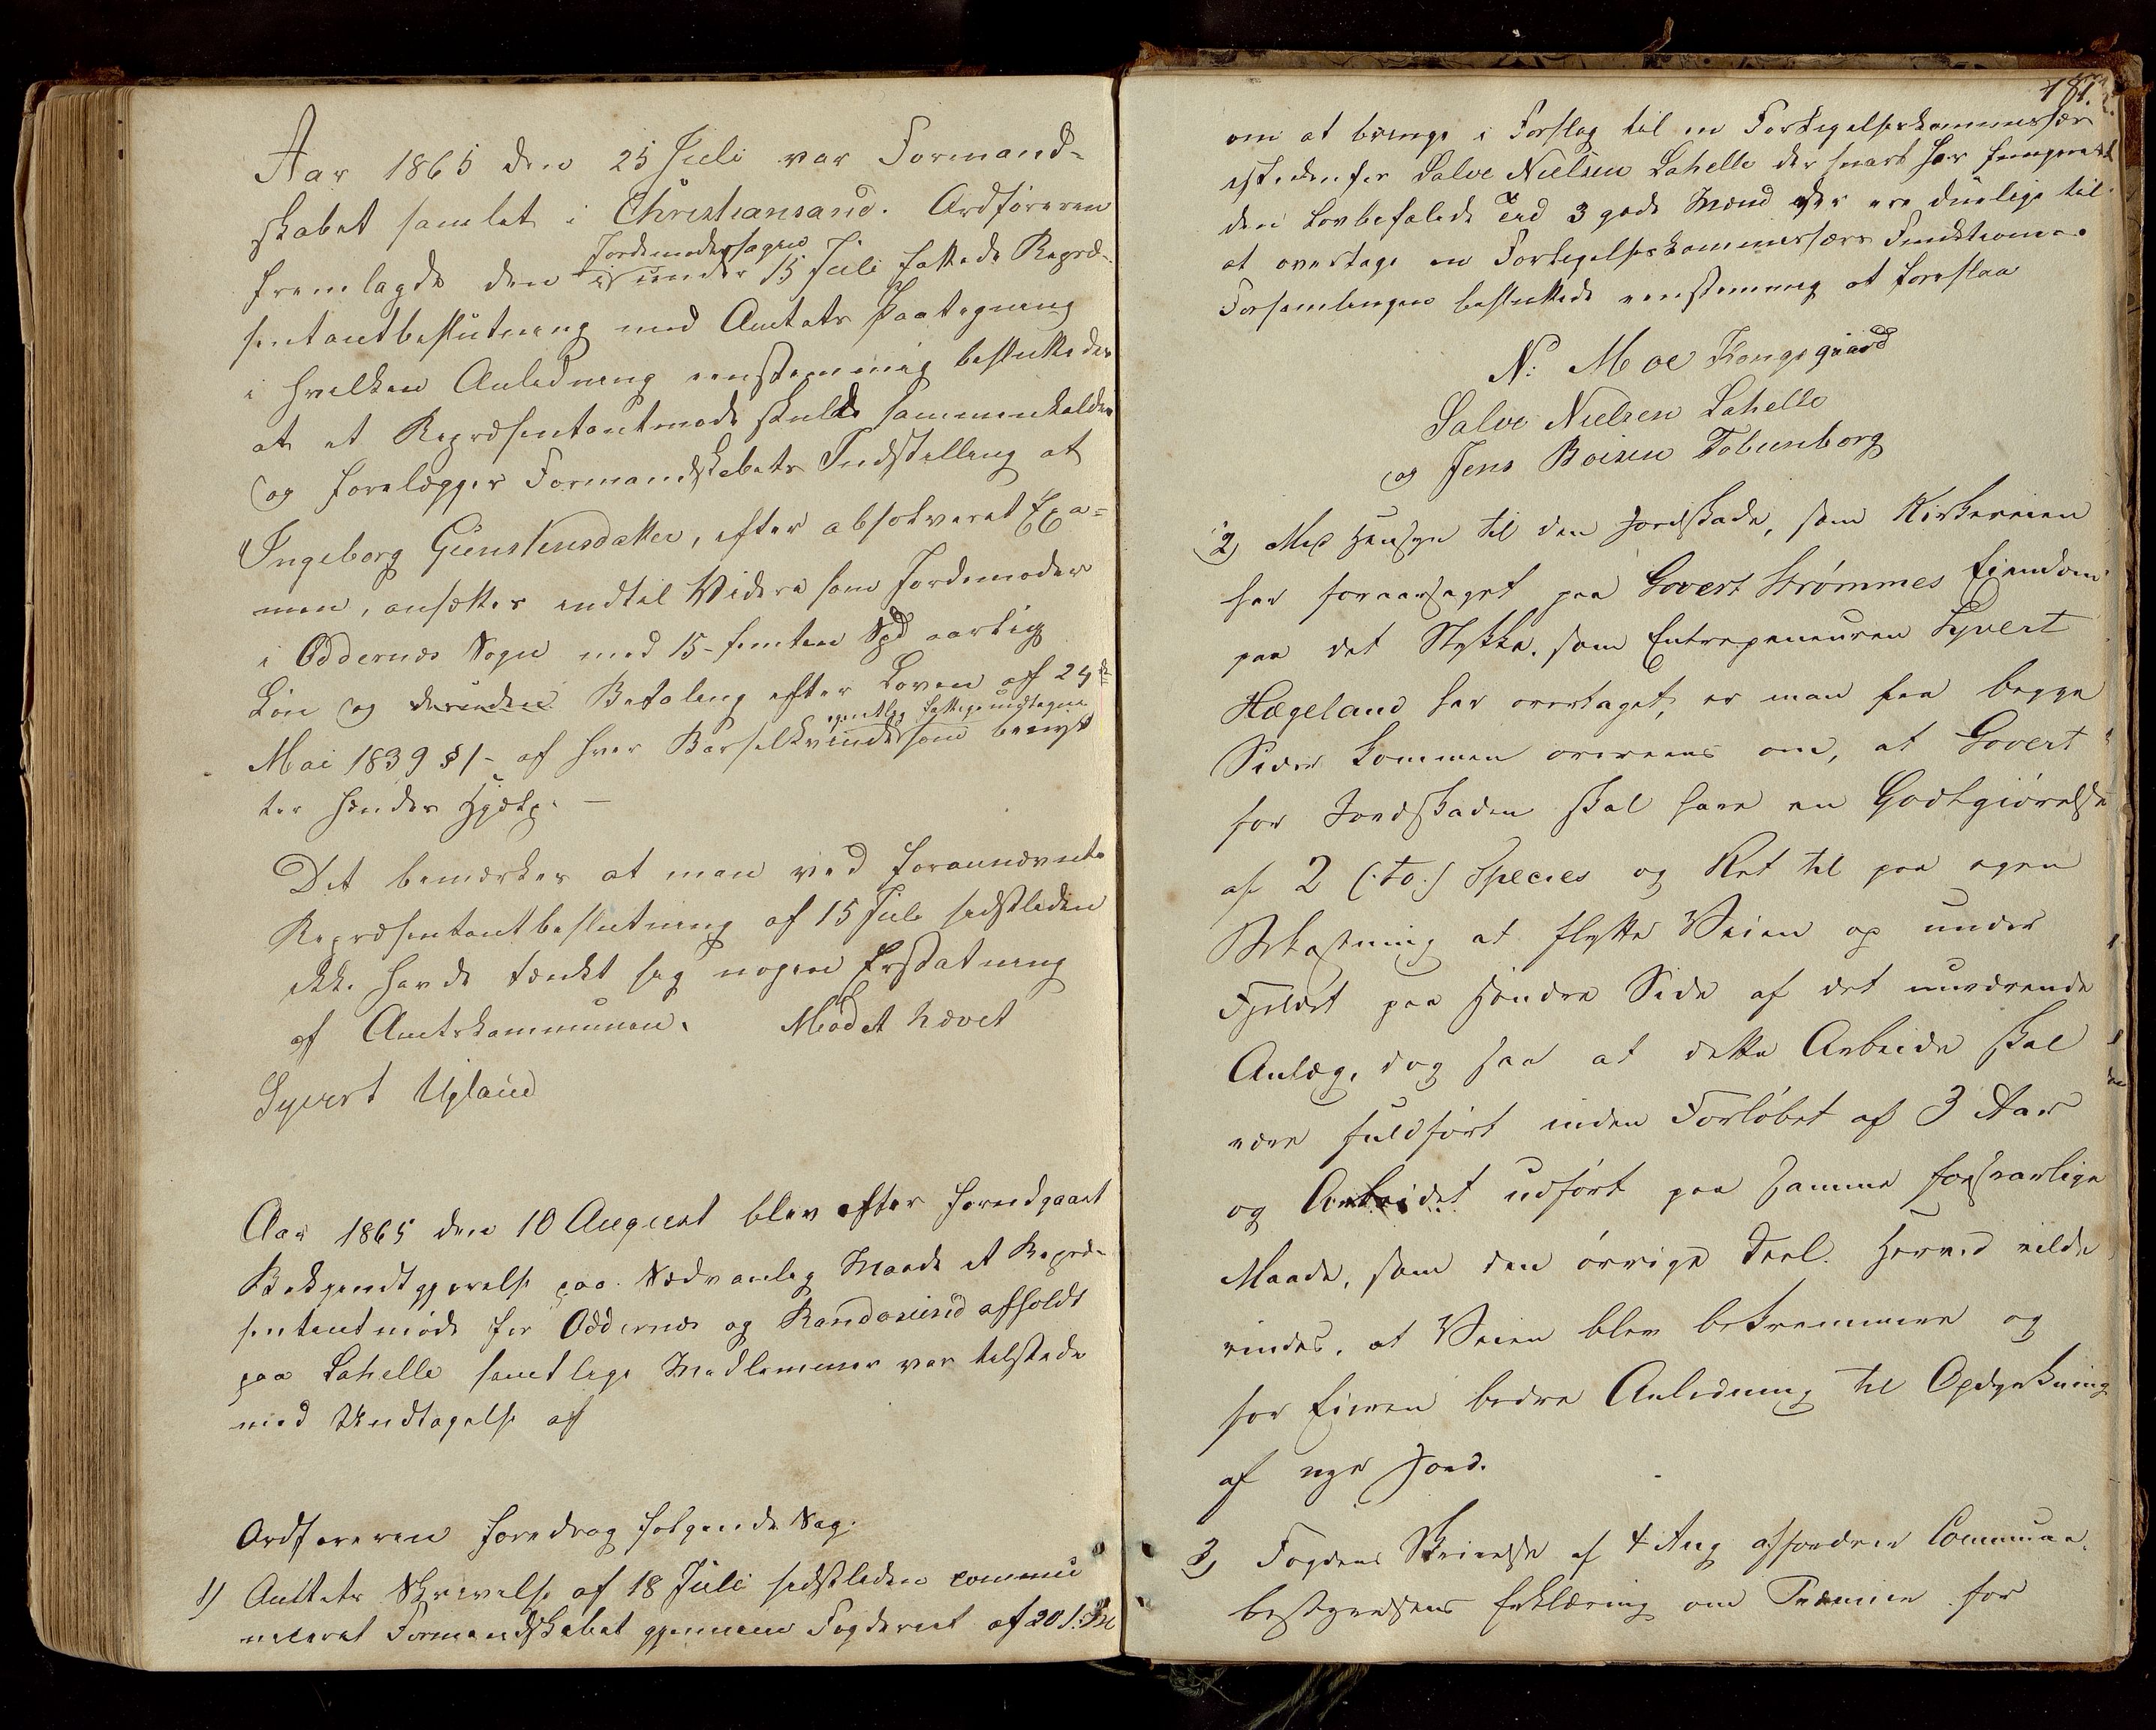 Aar 1865 den 25 Juli var Formand-
skabet samlet i Christiansand. Ordføreren
Jordemodersagen
fremlagde den i under 15 Juli fattede Repræ-
sentantbeslutning med Amtets Paategning
i hvilken Anledning eenstemmig besluttedes
at et Repræsentantmøde skulde sammenkaldes
og forelægges Formandskabets Indstilling at
Ingeborg Gunstensdatter, efter absolveret Exa-
men, ansættes indtil Videre som Jordemoder
i Oddernæs Sogn med 15 - femten Spd aarlig
Løn og desuden Betaling efter Loven af 24de
egentlig Fattige undtagne
Mai 1839 § 1 - af hver Barselkvinde som benyt
ter hendes Hjælp. —
Det bemærkes at man ved forannævnte
Repræsentantbeslutning af 15 Juli sidstleden
ikke havde tænkt sig nogen Erstatning
af Amtskommunen. Mødet hævet
Syvert Ugland
Aar 1865 den 10 August blev efter foregaaet
Bekjendtgjørelse paa sædvanlig Maade et Repræ-
sentantmøde for Oddernæs og Randøsund afholdt
paa Lahelle samtlige Medlemmer var tilstede
med Undtagelse af
Ordføreren foredrog følgende Sag.
1) Amtets Skrivelse af 18 Juli sidstleden commu
niceret Formandskabet gjennem Fogderiet af 20 s. M
181.
om at bringe i Forslag til en Forligelseskommissær
istedenfor Salve Nielsen Lahelle der snart har fungeret
den lovbefalede Tid 3 gode Mænd der ere duelige til
at overtage en Forligelseskommissærs Funktioner.
Forsamlingen besluttede eenstemmig at foreslaa
N. Moe Kongsgaard
Salve Nielsen Lahelle
og Jens Boisen Tobienborg
2) Med Hensyn til den Jordskade, som Kirkeveien
har foraarsaget paa Govert Strømmes Eiendom
paa det Stykke, som Entrepeneuren Syvert
Hægeland har overtaget, er man fra begge
Sider kommen overeens om, at Govert
for Jordskaden skal have en Godtgiørelse
af 2 (:to:) Species og Ret til paa egen
Bekostning at flytte Veien op under
Fjeldet paa høndre Side af det nuværende
Anlæg, dog saa at dette Arbeide skal
være fuldført inden Forløbet af 3 Aar
og Arbeidet udført paa samme forsvarlige
Maade, som den øvrige Deel. Herved vilde
vindes, at Veien blev bekvemmere og
for Eieren bedre Anledning til Opdyrkning
af nye Jord.
3) Fogdens Skrivelse af 4 Aug affordrer Commune-
bestyrelsens Erklæring om Præmie for